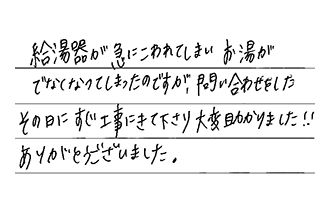 給湯器が急にこわれてしまい お湯が
でなくなってしまったのですが、問い合わせをした
その日にすぐ工事にきて下さり大変助かりました!!
ありがとうございました。